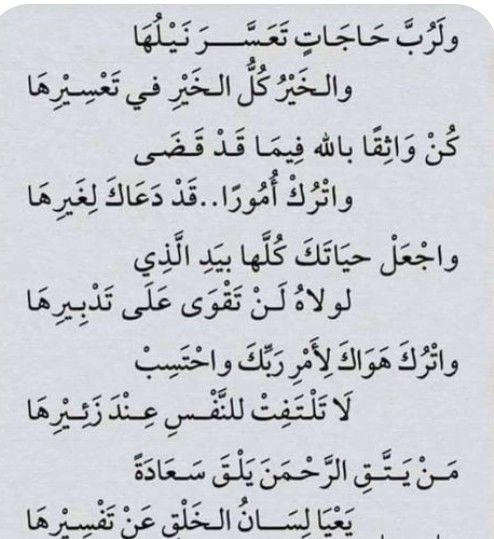 ولَرُبَّ حَاجَاتٍ تَعَسَّــرَ نَيْلُهَا
والـخَيْرُ كُلُّ الـخَيْرِ في تَعْسِـيْرِهَا
كُنْ وَاثِقًا بالله فِيمَـا قَـدْ قَـضَـى
واتْرُكْ أُمُورًا..قَدْ دَعَاكَ لِغَيرِهَا
واجْعَلْ حيَاتَكَ كُلَّها بيَدِ الَّذِي
لولاهُ لَـنْ تَقْوَى عَلَى تَدْبِـيرِهَا
واتْرُكَ هَوَاكَ لِأَمْرِ رَبِّكَ واحْتَسِبْ
لَا تَلْـتَفِتْ للنَّفْـسِ عِـنْدَ زَئِـيْرِهَا
مَـنْ يَـتَّـقِ الرَّحْـمَنَ يَلْقَ سَـعَادَةً
يَعْيَا لِسَــانُ الـخَلْقِ عَنْ تَفْسِـيْرِهَا